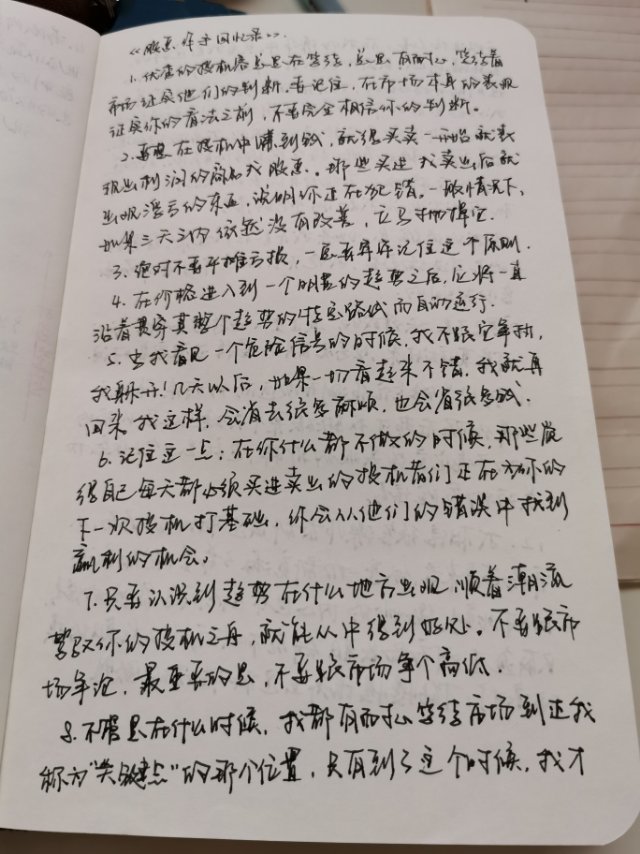 《股票作手回忆录》.
1. 优秀的投机客总是在等待，总是有耐心，等待着
市场证实他们的判断。要记住，在市场本身的表现
证实你的看法之前，不要完全相信你的判断。
2. 要想在投机中赚到钱，就得买卖一开始就表
现出利润的商品或股票。那些买进或卖出后就
出现浮亏的东西，说明你正在犯错。一般情况下，
如果三天之内依然没有改善，立马抛掉它.
3. 绝对不要平摊亏损，一定要牢牢记住这个原则.
4. 在价格进入到一个明显的趋势之后，它将一直
沿着贯穿其整个趋势的特定路线而自动运行.
5. 当我看见一个危险信号的时候，我不跟它争执，
我躲开！几天以后，如果一切看起来不错，我就再
回来。我这样，会省去很多麻烦，也会省很多钱.
6. 记住这一点：在你什么都不做的时候，那些觉
得自己每天都必须买进卖出的投机者们正在为你的
下一次投机打基础，你会从他们的错误中找到
赢利的机会。
7. 只要认识到趋势在什么地方出现，顺着潮流
驾驭你的投机之舟，就能从中得到好处。不要跟市
场争论，最重要的是，不要跟市场争个高低.
8. 不管是在什么时候，我都有耐心等待市场到达我
称为“关键点”的那个位置，只有到了这个时候，我才